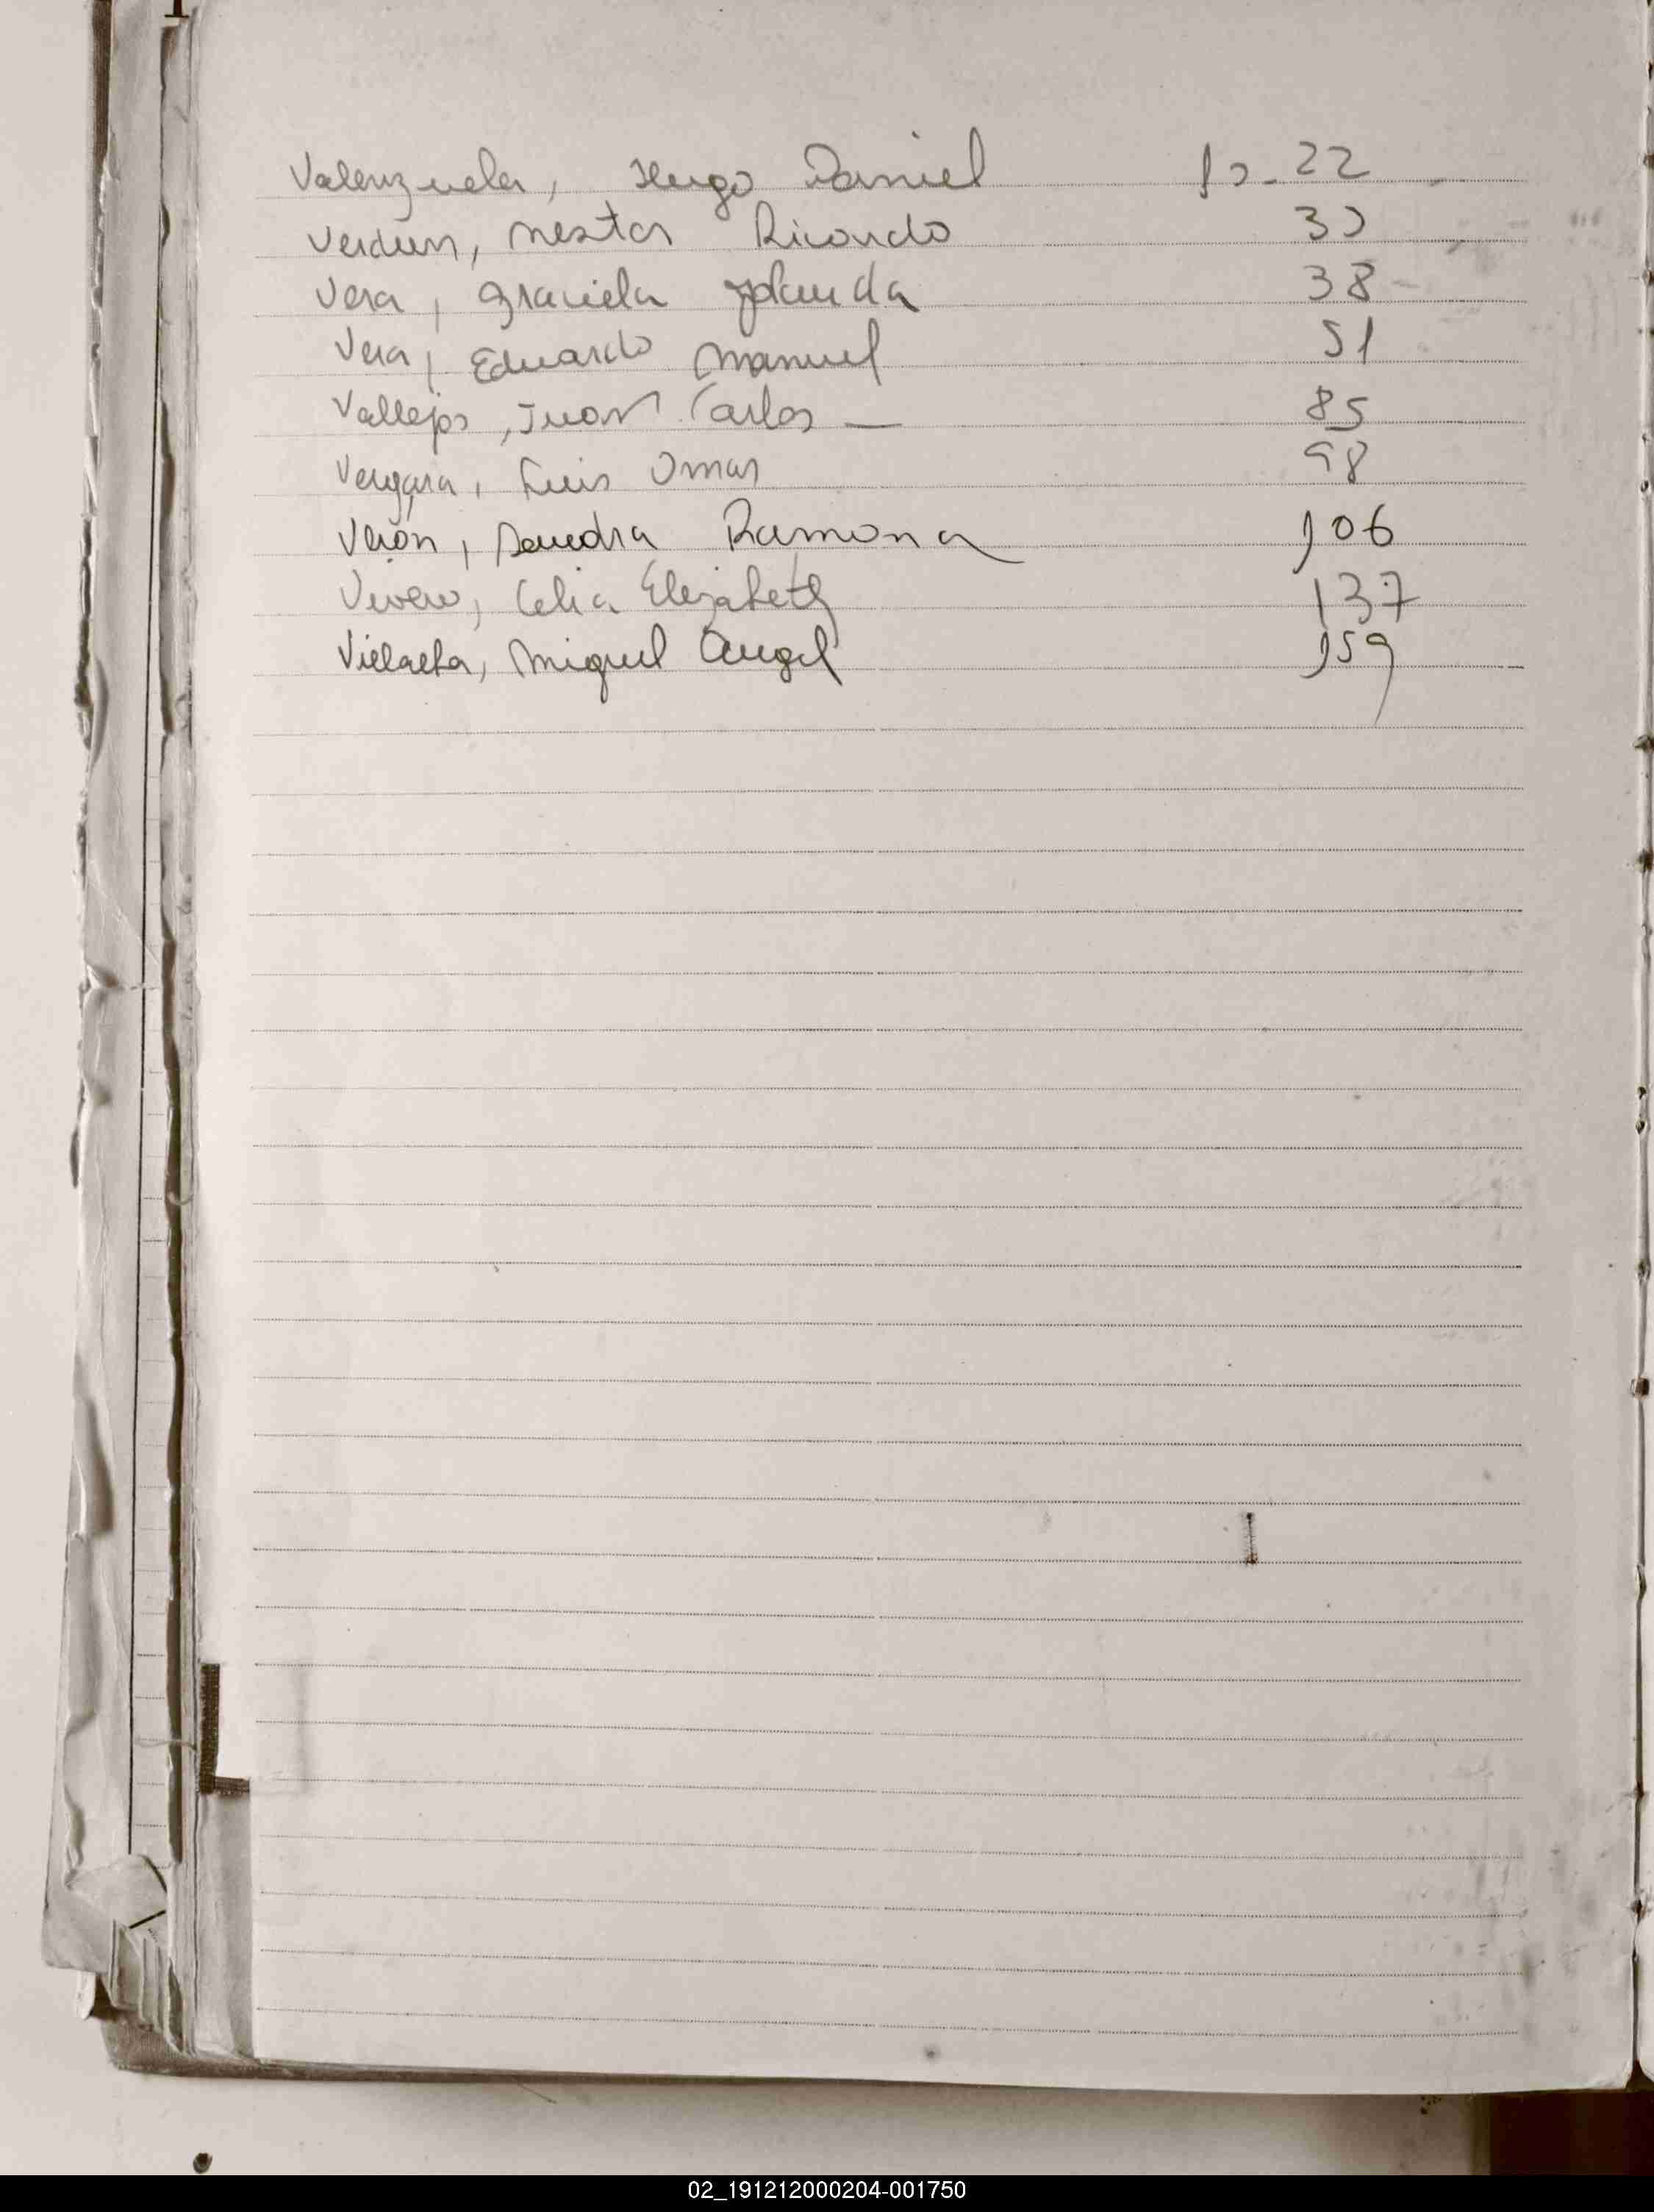 Valenzuela, Hugo Daniel 22
Verdun, Nestor Ricardo
Vera, Graciela Yolanda 38
Vera, Eduardo Manuel 51
Vallejos, Juan Carlos — 85
Vergara, Luis Omar 98
Verón, Sandra Ramona 106
Vivero, Celia Elizabeth 137
Villalba, Miguel Angel 159
02_191212000204-001750